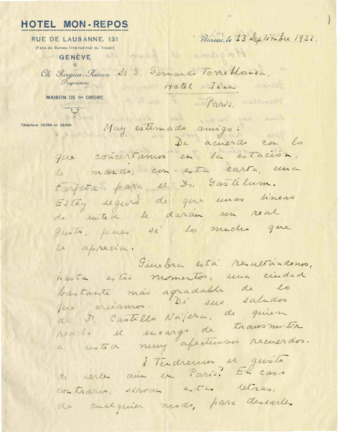 HOTEL MON-REPOS
RUE DE LAUSANNE, 131
(Face du Bureau International du Travail)
GENÈVE
MAISON DE 1er ORDRE
Genève, le 23 Septembre 1932.
Sr. D. Fernando Torreblanca
Hotel
Paris.
Muy estimado amigo:
De acuerdo con lo
que concertamos en la estación,
le mando, con esta carta, una
tarjeta para el Dr. Gastélum.
Estoy seguro de que unas líneas
de usted le darán un real
gusto, pues sé lo mucho que
le aprecia.
Ginebra está resultándonos,
hasta estos momentos, una ciudad
bastante más agradable de lo
que creíamos. Di sus saludos
al Dr. Castillo Nájera, de quien
recibo el encargo de transmitir
a usted muy afectuosos recuerdos.
¿Tendremos el gusto
de verle aún en París? En caso
contrario, sirvan estas letras,
de cualquier modo, para desearles